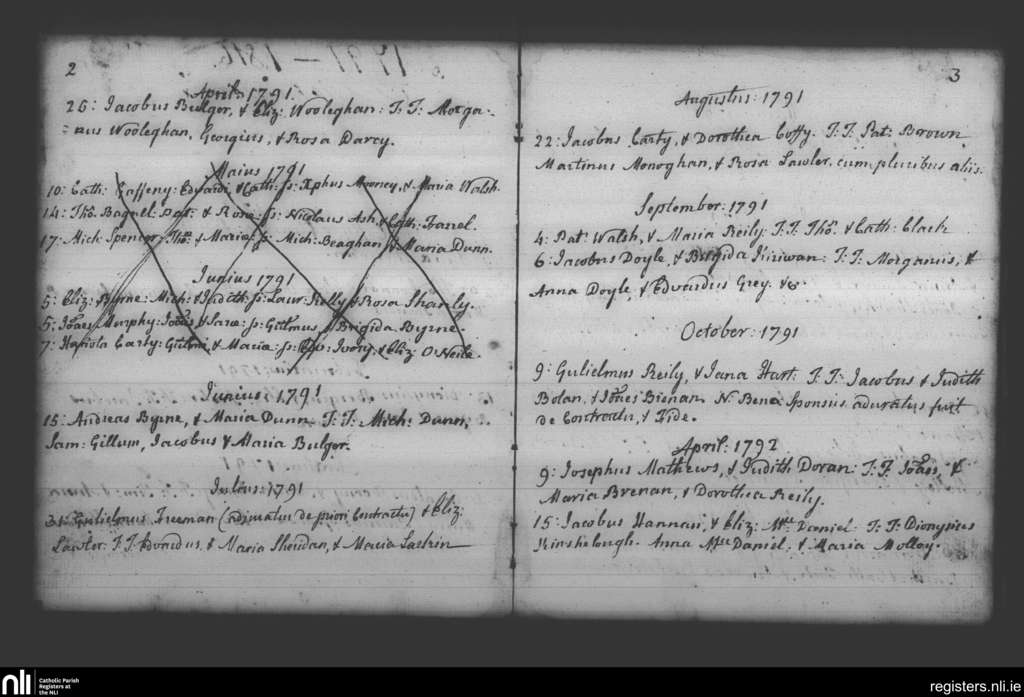 2
April: 1791.
26: Jacobus Bulger, & Eliz: Wooleghan: T: T: Morga-
-nus Wooleghan, Georgius, & Rosa Darcy.
Maius 1791
10: Cath: Gaffeny: Edvardi, & Cath: ss: Xphus Mooney, & Maria Walsh.
14: Tho: Bagnel: Pat: & Rosæ: ss: Nicolaus Ash, & Cath: Farrel.
17: Mich: Spencer: Tho: & Mariæ: ss: Mich: Beaghan, & Maria Dunn.
Junius 1791
5: Eliz: Byrne: Mich: & Judith: ss: Laur: Kelly & Rosa Shanly.
5: Joães Murphy: Joães & Saræ: ss: Gulmus, & Brigida Byrne.
7: Hariota Carty: Gulmi, & Mariæ: ss: Ivory, & Eliz: O Neile.
Junius: 1791
15: Andreas Byrne, & Maria Dunn: T: T: Mich: Dunn,
Sam: Gillum, Jacobus & Maria Bulger.
Julius: 1791
31: Gulielmus Freeman (adimatur de priori Contractu) & Eliz:
Lawler: T: T: Edvardus, & Maria Sheridan, & Maria
3
Augustus: 1791
22: Jacobus Carty, & Dorothea Coffy. T: T: Pat: Brown
Martinus Monoghan, & Rosa Lawler, cum pluribus aliis.
September: 1791
4: Pat: Walsh, & Maria Reily: T: T: Tho: & Cath: Clack
6: Jacobus Doyle, & Brigida Kiriwan: T: T: Morganus, &
Anna Doyle, & Edvardus Grey. &c.
October: 1791
9: Gulielmus Reily, & Jana Hart: T: T: Jacobus & Judith
Bolan, & Joães Brenan. N: Bene: Sponsus aduratus fuit
de Contractu, & Fide.
April: 1792
9: Josephus Mathews, & Judith Doran: T: T: Joães, &
Maria Brenan, & Dorothea Reily.
15: Jacobus Hannan, & Eliz: Mcc Daniel: T: T: Dionysius
Kinshelough. Anna Mcc Daniel, & Maria Molloy.
nli
Catholic Parish
Registers at
the NLI
registers.nli.ie